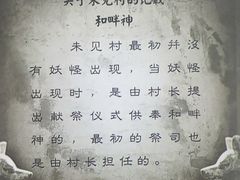 关于朱见村的记载
和畔神
朱见村最初并没
有妖怪出现，当妖怪
出现时，是由村长提
出献祭仪式供奉和畔
神的，最初的祭司也
是由村长担任的。